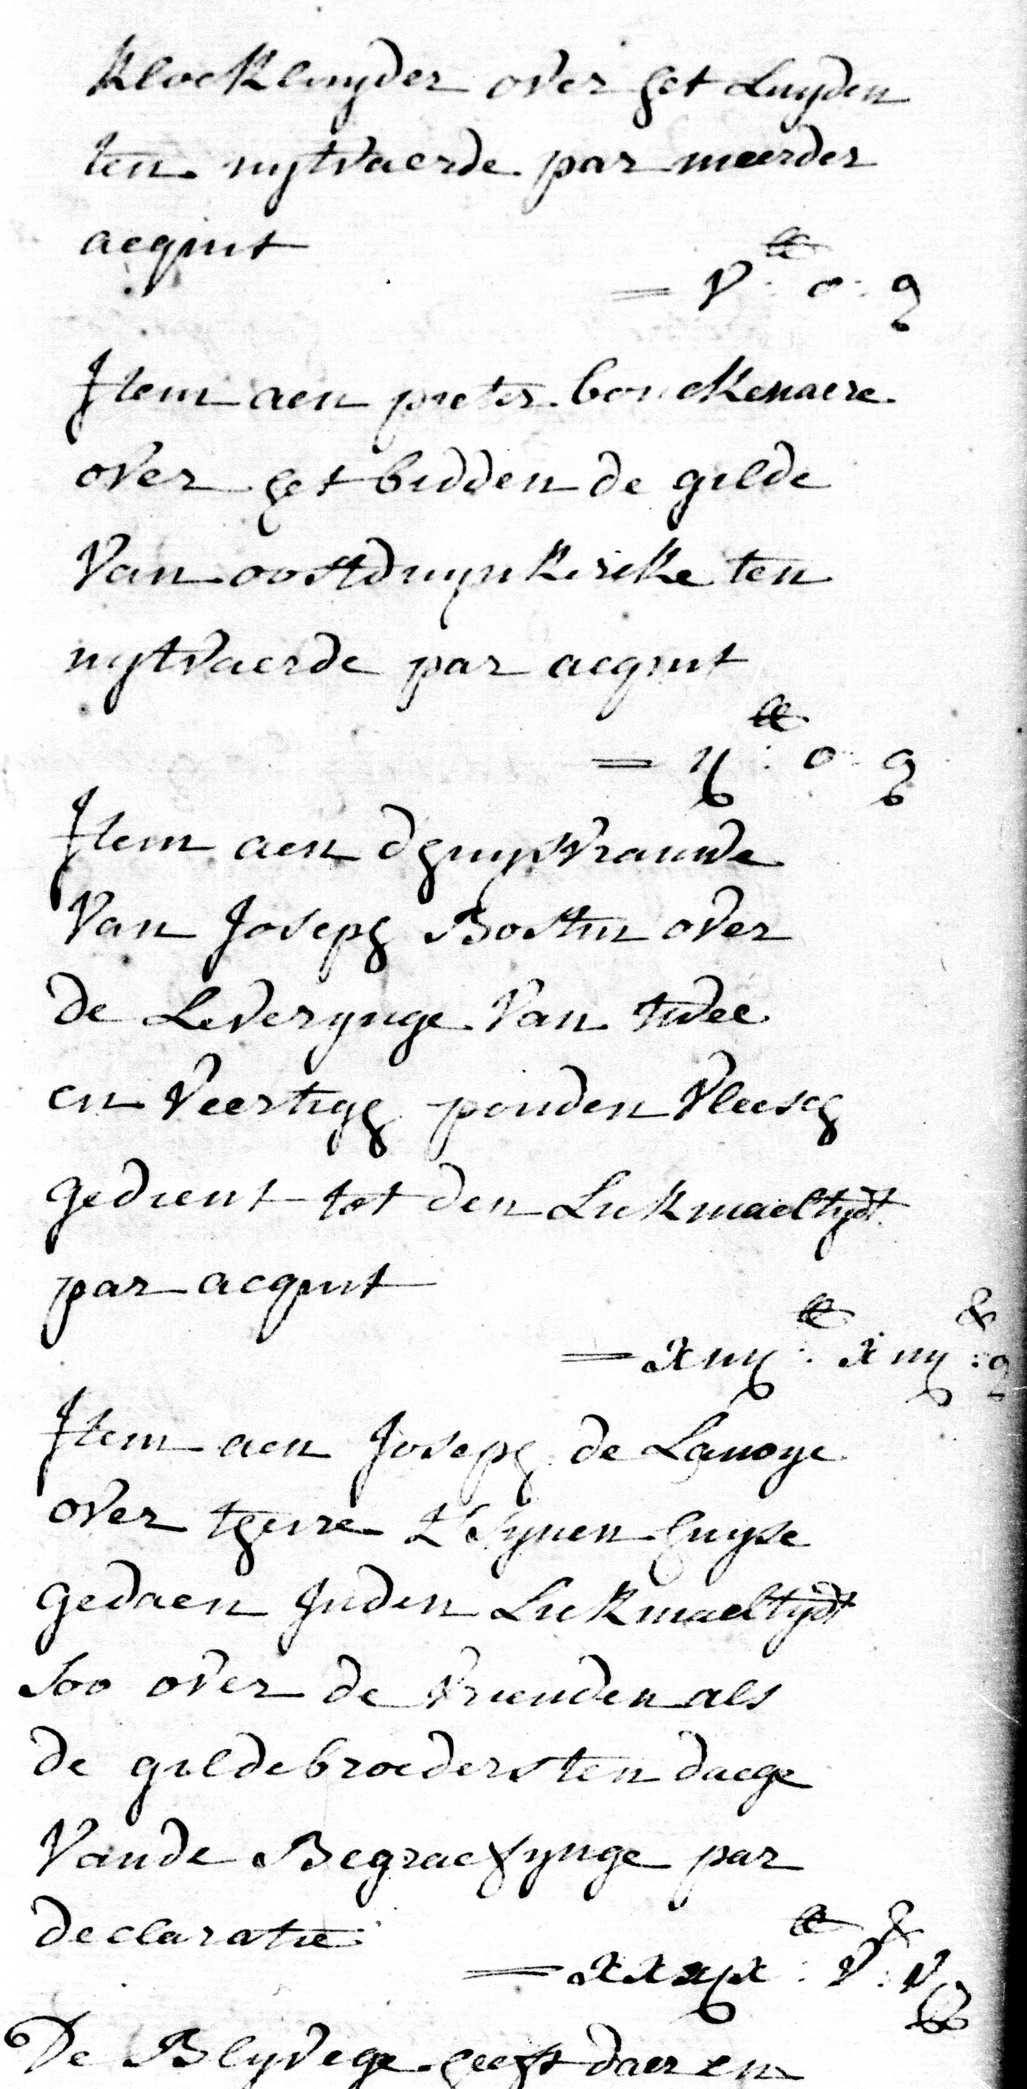 klockluyder over het Luyden
ten uytvaerde par meerder
acquit
= v lb : o : o
Item aen pieter bouckenaere
over het bidden de gilde
Van oostduynkercke ten
uytvaerde par acquit
= ij lb : o : o
Item aen dhuysvrauwe
Van Joseph Bostin over
de Leverynge Van twee
en Veertigh ponden Vleesch
gedient tot den Lickmaeltydt
par acquit
= xiiij lb : xiiij ß : o
Item aen Joseph de Lanoye
over tgene t'synen huyse
gedaen Inden Lickmaeltydt
soo over de Vrienden als
de guldebroeders ten daege
Vande Begraefvynge par
declaratie
= : v ß : vj
De Blyvege heeft daer en